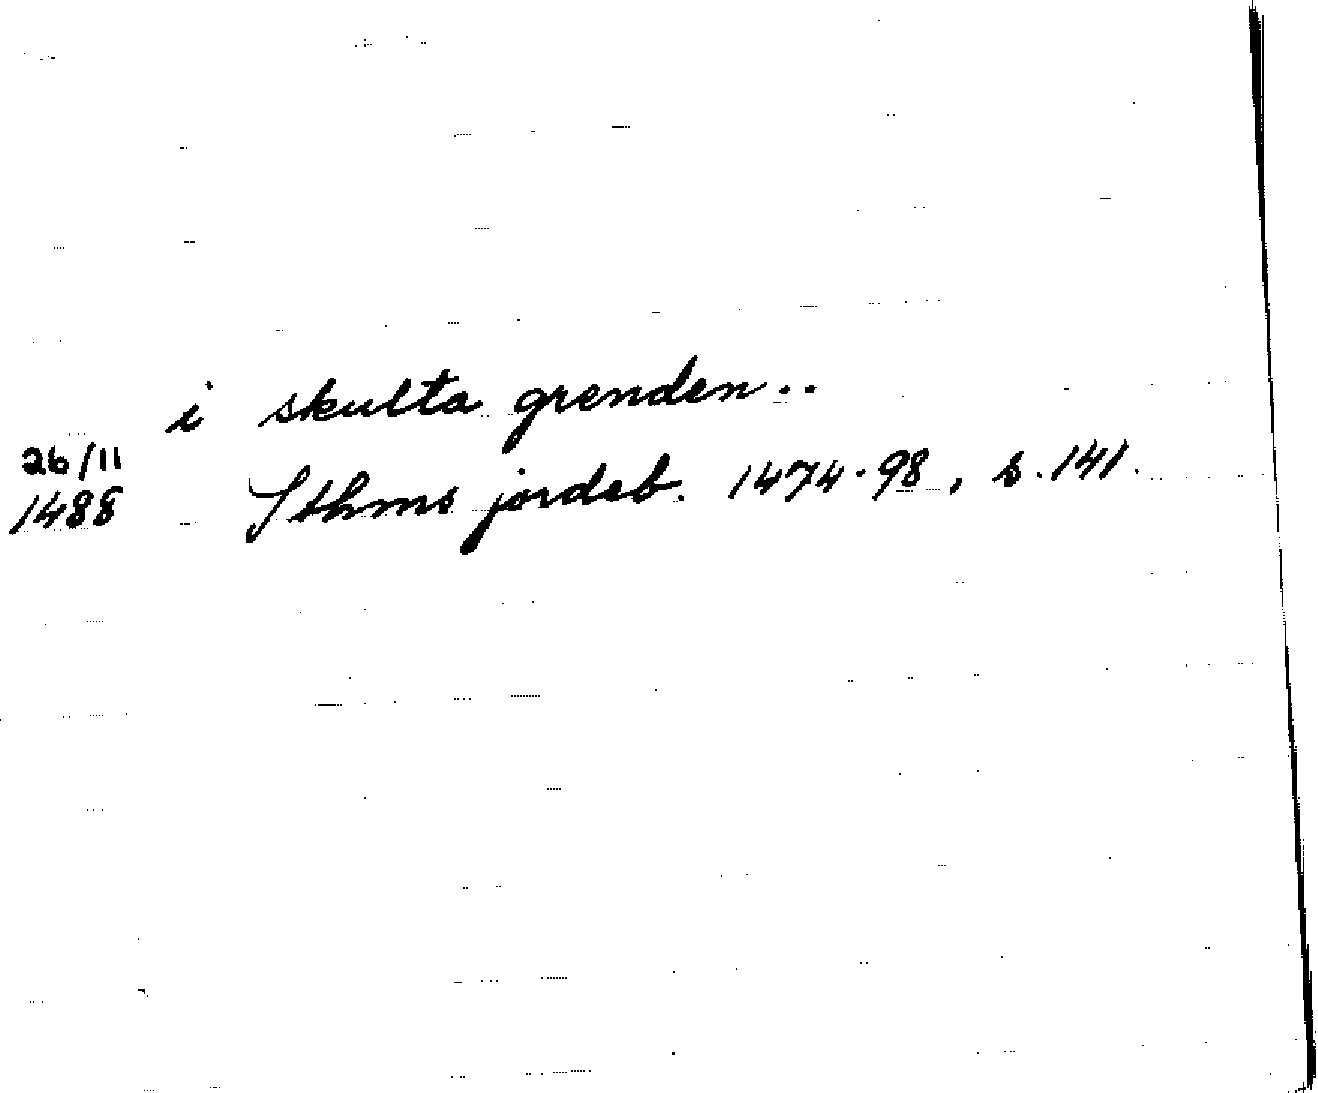 i skulta grenden..
26/11
1488 Sthms jordeb. 1474-98, s. 141.